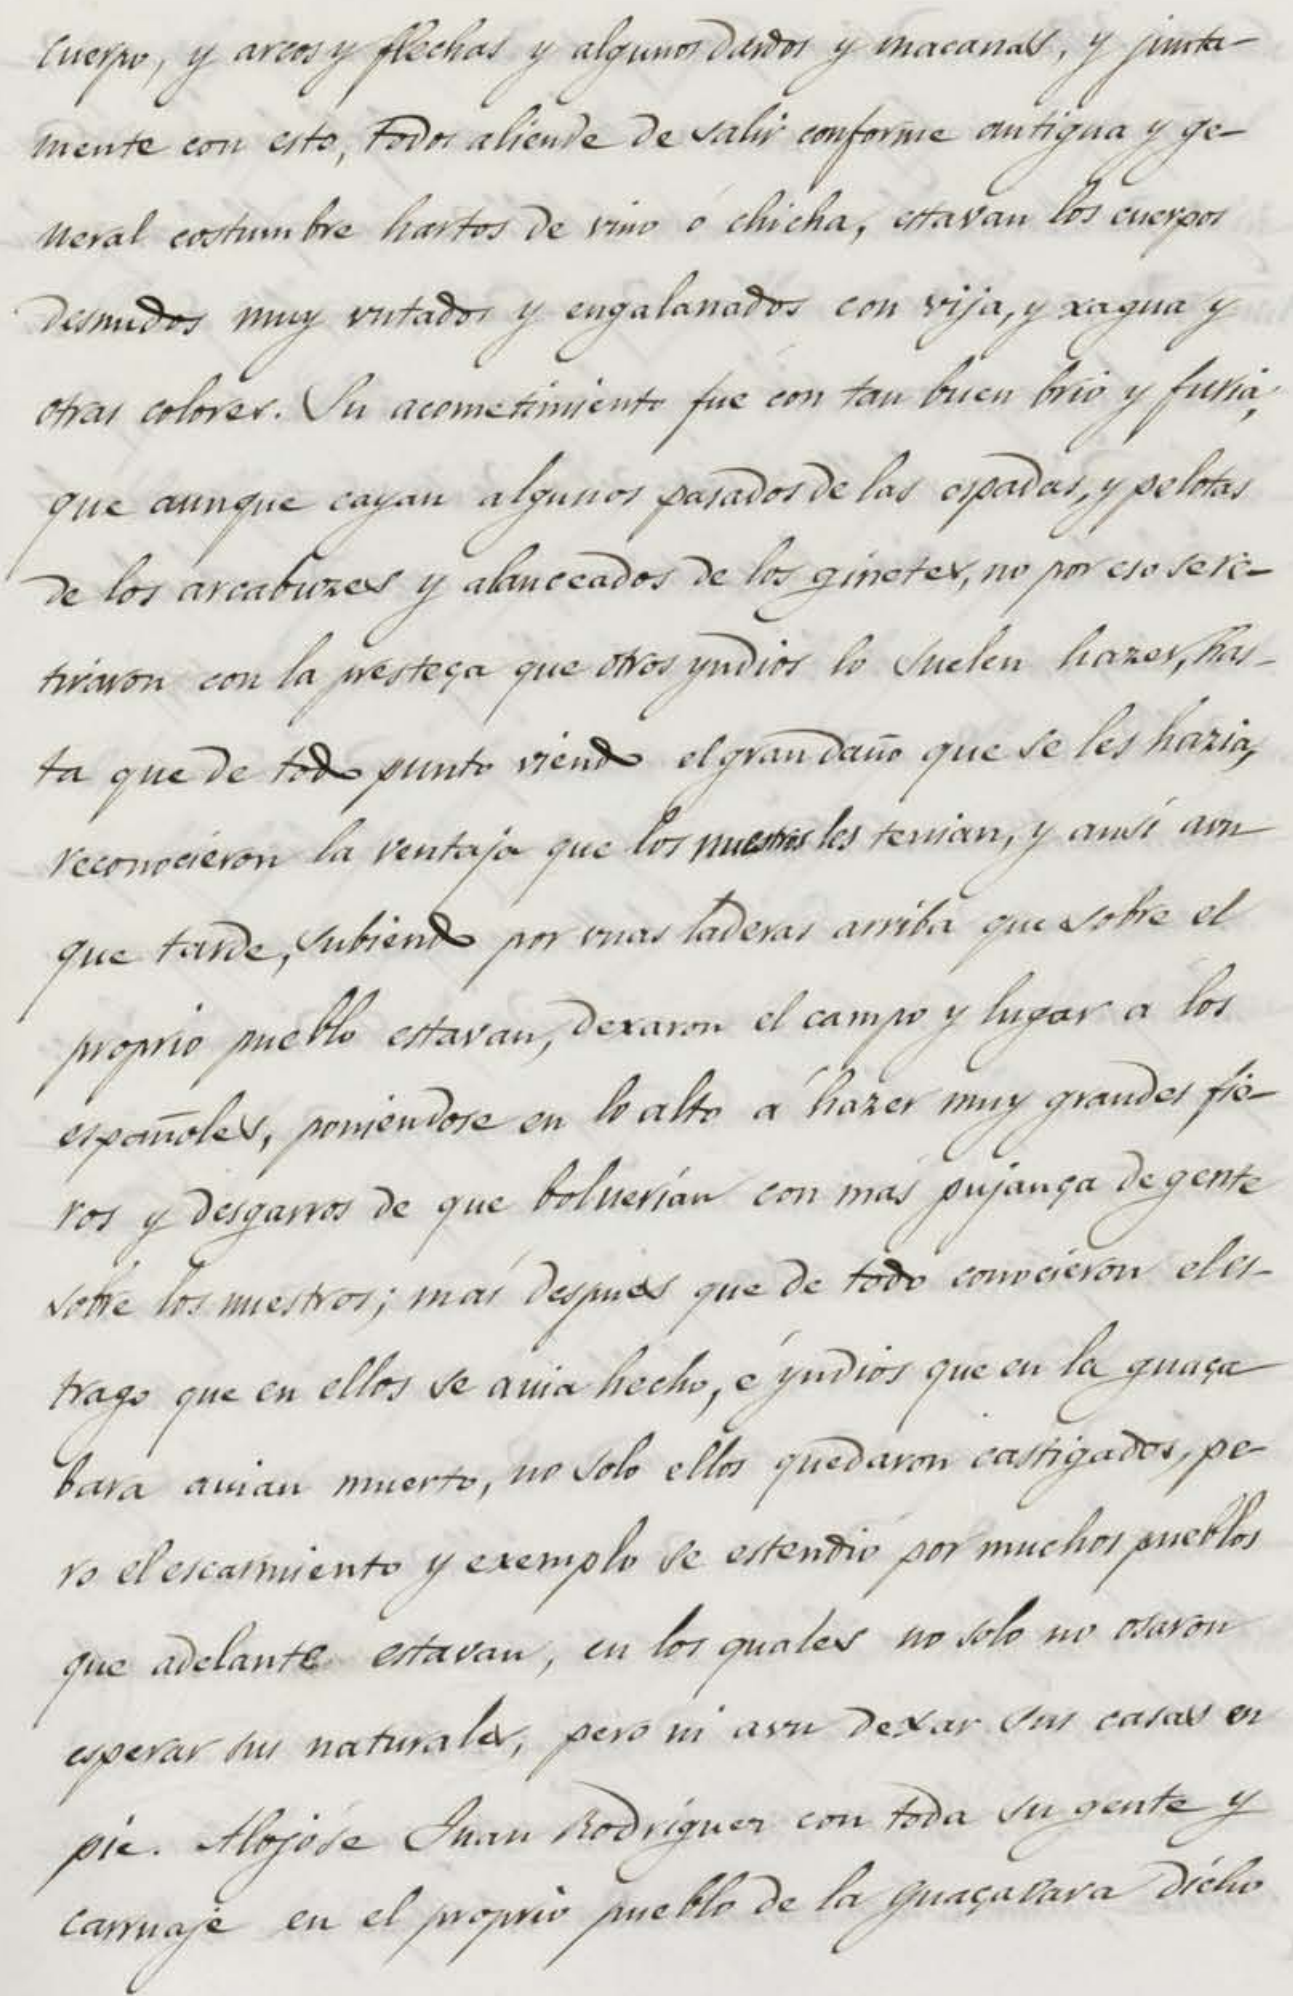 cuerpo, y arcos y flechas y algunos dardos y macanas, y junta-
mente con esto, todos aliende de salir conforme antigua y ge-
neral costumbre hartos de vino ó chicha, estavan los cuerpos
desnudos muy vntados y engalanados con vija, y xagua y
otras colores. Su acometimiento fue con tan buen brio y furia,
que aunque cayan algunos pasados de las espadas, y pelotas
de los arcabuzes y alanceados de los ginetes, no por eso se re-
tiraron con la presteça que otros yndios lo suelen hazer, has-
ta que de todo punto viendo el gran daño que se les hazia,
reconocieron la ventaja que los nuestros les tenian, y ansí avn
que tarde, subiendo por vnas laderas arriba que sobre el
proprio pueblo estavan, dexaron el campo y lugar a los
españoles, poniendose en lo alto a hazer muy grandes fie-
ros y desgarros de que boluerían con mas pujança de gente
sobre los nuestros; mas despues que de todo conocieron el es-
trago que en ellos se auia hecho, é yndios que en la guaça
bara auian muerto, no solo ellos quedaron castigados, pe-
ro el escarmiento y exemplo se estendió por muchos pueblos
que adelante estavan, en los quales no solo no osaron
esperar sus naturales, pero ni avn dexar sus casas en
pie. Alojóse Juan Rodriguez con toda su gente y
carruaje en el proprio pueblo de la guaçavara dicho